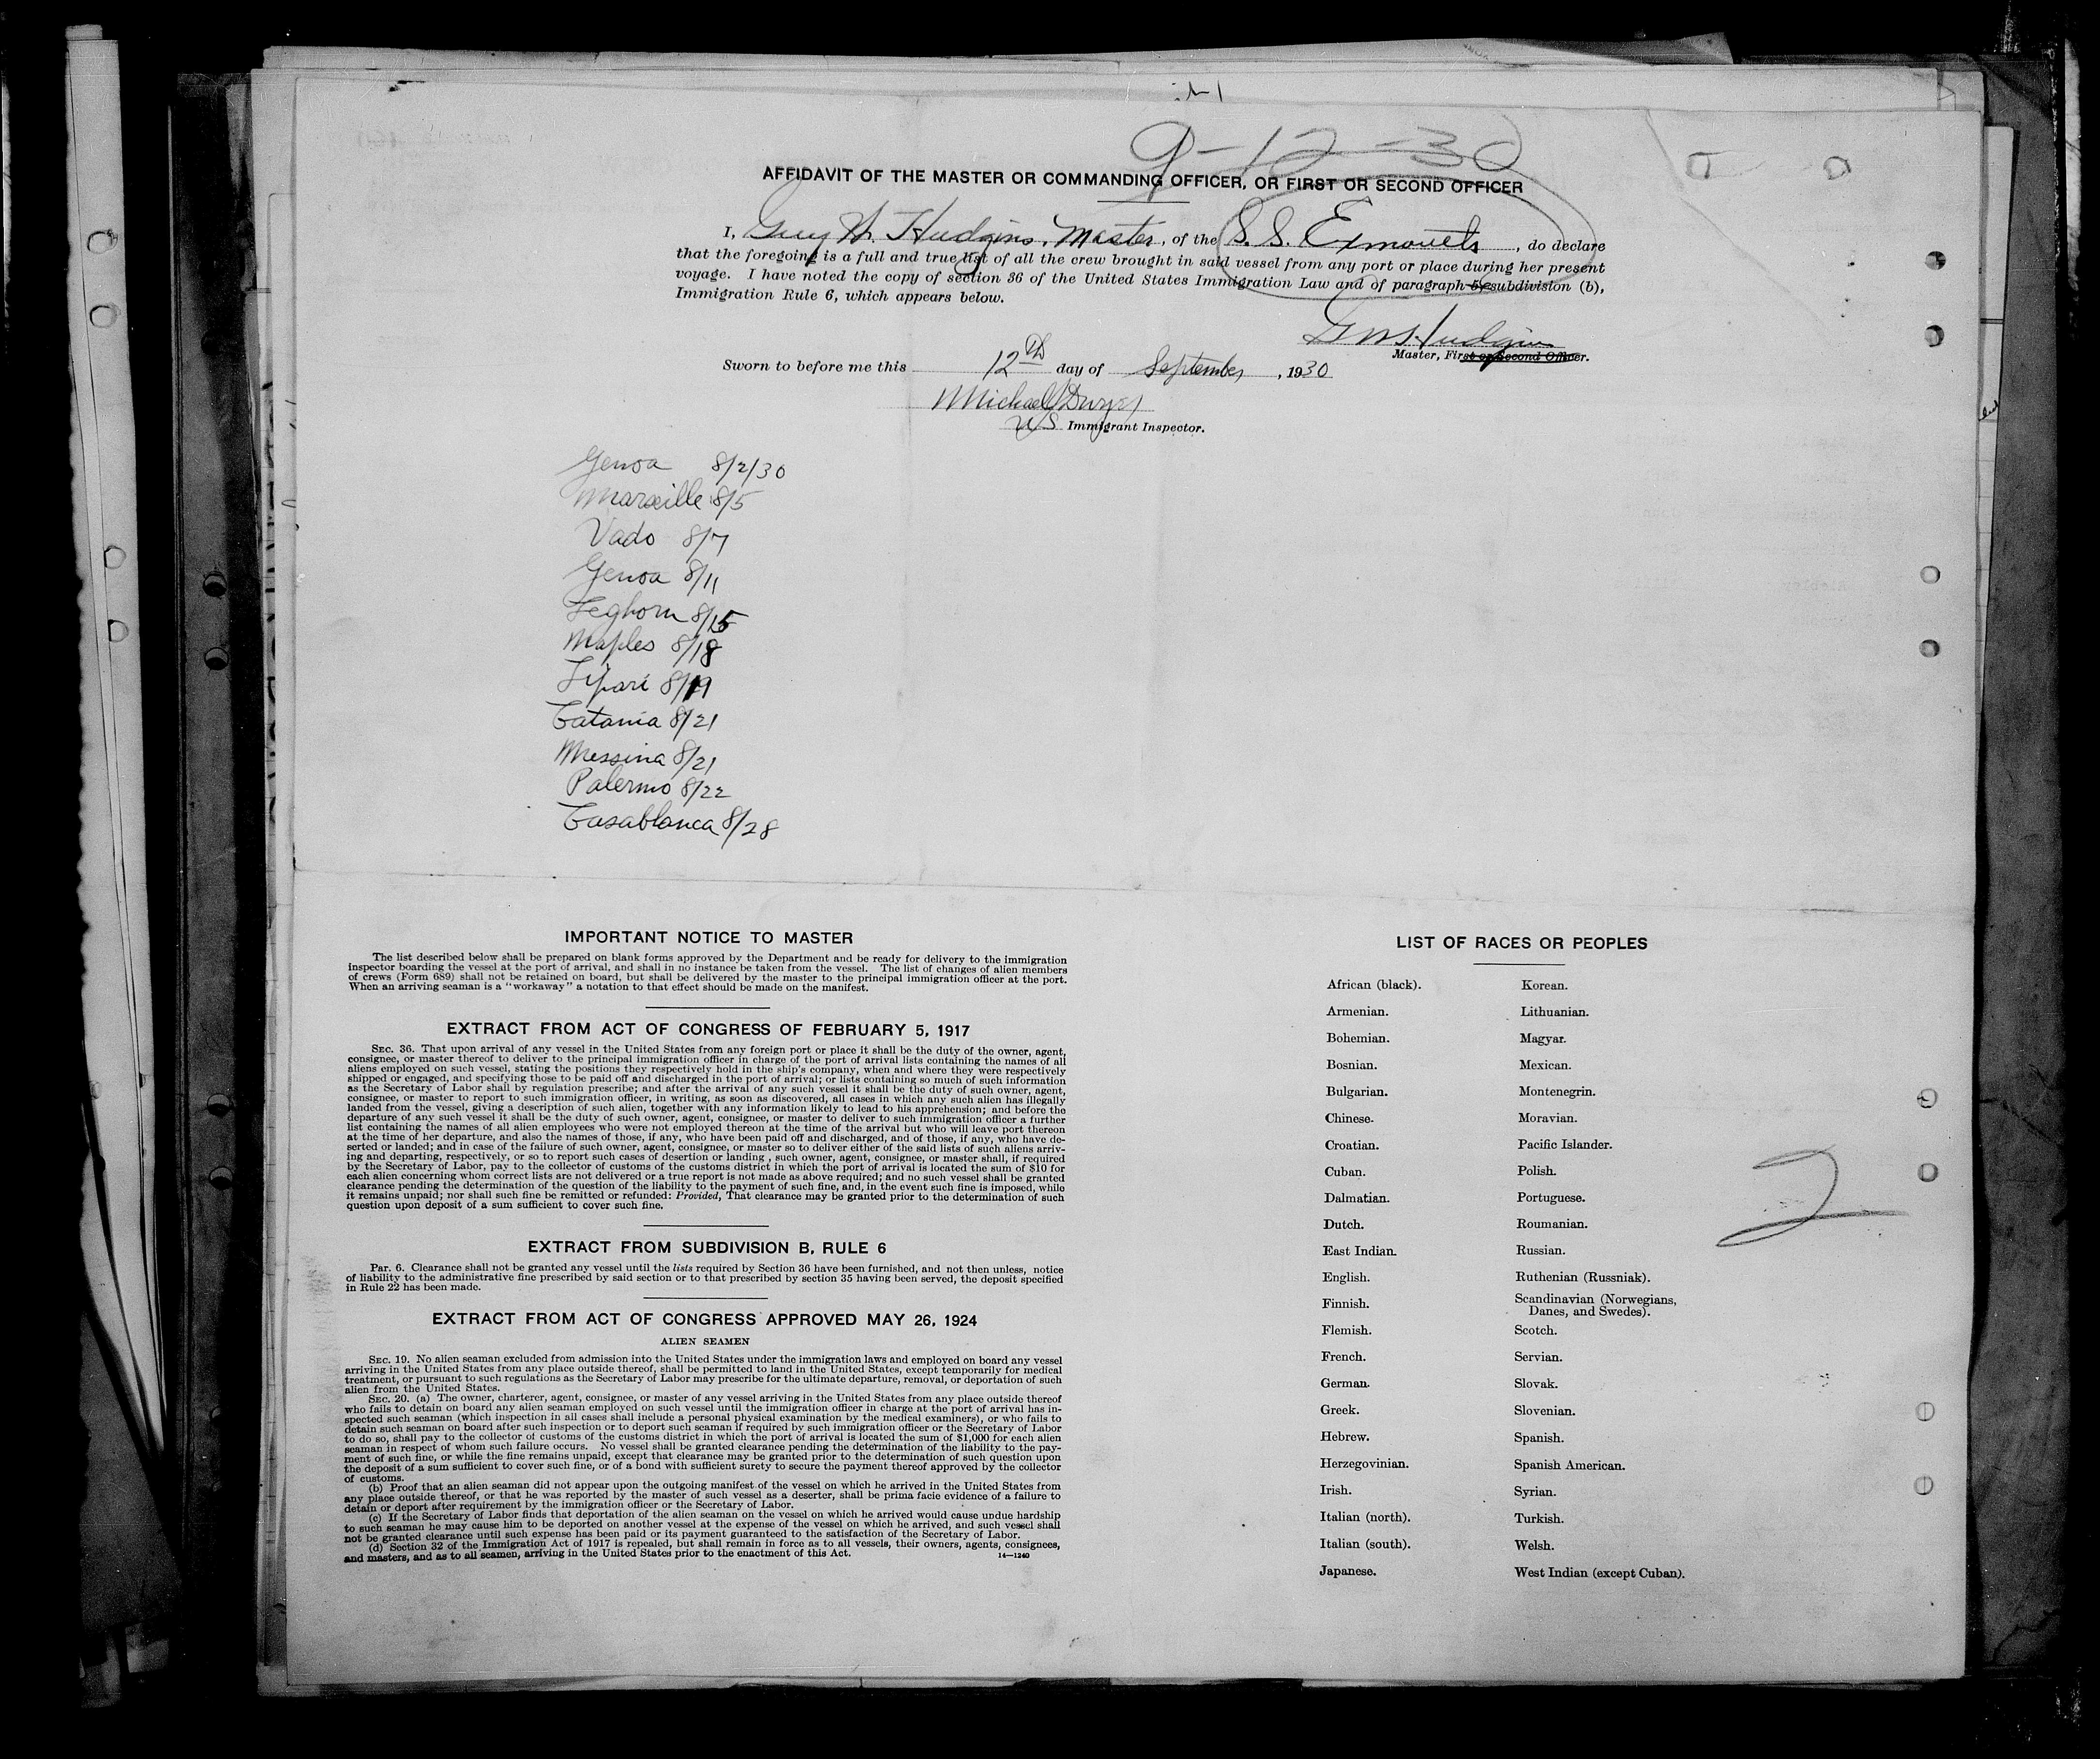 9-12-30
AFFIDAVIT OF THE MASTER OR COMMANDING OFFICER, OR FIRST OR SECOND OFFICER
I, Guy W. Hudgins, Master, of the S. S. Exmouth, do declare
that the foregoing is a full and true list of all the crew brought in said vessel from any port or place during her present
voyage. I have noted the copy of section 36 of the United States Immigration Law and of paragraph subdivision (b),
Immigration Rule 6, which appears below.
G W Hudgins
Master, First or Second Officer.
Sworn to before me this 12th day of September, 1930
Michael Dwyer
US Immigrant Inspector.
Genoa 8/2/30
Marseille 8/5
Vado 8/7
Genoa 8/11
Leghorn 8/15
Naples 8/18
Lipari 8/19
Catania 8/21
Messina 8/21
Palermo 8/22
Casablanca 8/28
IMPORTANT NOTICE TO MASTER
The list described below shall be prepared on blank forms approved by the Department and be ready for delivery to the immigration
inspector boarding the vessel at the port of arrival, and shall in no instance be taken from the vessel. The list of changes of alien members
of crews (Form 689) shall not be retained on board, but shall be delivered by the master to the principal immigration officer at the port.
When an arriving seaman is a "workaway" a notation to that effect should be made on the manifest.
EXTRACT FROM ACT OF CONGRESS OF FEBRUARY 5, 1917
SEC. 36. That upon arrival of any vessel in the United States from any foreign port or place it shall be the duty of the owner, agent,
consignee, or master thereof to deliver to the principal immigration officer in charge of the port of arrival lists containing the names of all
aliens employed on such vessel, stating the positions they respectively hold in the ship's company, when and where they were respectively
shipped or engaged, and specifying those to be paid off and discharged in the port of arrival; or lists containing so much of such information
as the Secretary of Labor shall by regulation prescribe; and after the arrival of any such vessel it shall be the duty of such owner, agent,
consignee, or master to report to such immigration officer, in writing, as soon as discovered, all cases in which any such alien has illegally
landed from the vessel, giving a description of such alien, together with any information likely to lead to his apprehension; and before the
departure of any such vessel it shall be the duty of such owner, agent, consignee, or master to deliver to such immigration officer a further
list containing the names of all alien employees who were not employed thereon at the time of the arrival but who will leave port thereon
at the time of her departure, and also the names of those, if any, who have been paid off and discharged, and of those, if any, who have de-
serted or landed; and in case of the failure of such owner, agent, consignee, or master so to deliver either of the said lists of such aliens arriv-
ing and departing, respectively, or so to report such cases of desertion or landing , such owner, agent, consignee, or master shall, if required
by the Secretary of Labor, pay to the collector of customs of the customs district in which the port of arrival is located the sum of $10 for
each alien concerning whom correct lists are not delivered or a true report is not made as above required; and no such vessel shall be granted
clearance pending the determination of the question of the liability to the payment of such fine, and, in the event such fine is imposed, while
it remains unpaid; nor shall such fine be remitted or refunded: Provided, That clearance may be granted prior to the determination of such
question upon deposit of a sum sufficient to cover such fine.
EXTRACT FROM SUBDIVISION B, RULE 6
Par. 6. Clearance shall not be granted any vessel until the lists required by Section 36 have been furnished, and not then unless, notice
of liability to the administrative fine prescribed by said section or to that prescribed by section 35 having been served, the deposit specified
in Rule 22 has been made.
EXTRACT FROM ACT OF CONGRESS APPROVED MAY 26, 1924
ALIEN SEAMEN
SEC. 19. No alien seaman excluded from admission into the United States under the immigration laws and employed on board any vessel
arriving in the United States from any place outside thereof, shall be permitted to land in the United States, except temporarily for medical
treatment, or pursuant to such regulations as the Secretary of Labor may prescribe for the ultimate departure, removal, or deportation of such
alien from the United States.
SEC. 20. (a) The owner, charterer, agent, consignee, or master of any vessel arriving in the United States from any place outside thereof
who fails to detain on board any alien seaman employed on such vessel until the immigration officer in charge at the port of arrival has in-
spected such seaman (which inspection in all cases shall include a personal physical examination by the medical examiners), or who fails to
detain such seaman on board after such inspection or to deport such seaman if required by such immigration officer or the Secretary of Labor
to do so, shall pay to the collector of customs of the customs district in which the port of arrival is located the sum of $1,000 for each alien
seaman in respect of whom such failure occurs. No vessel shall be granted clearance pending the determination of the liability to the pay-
ment of such fine, or while the fine remains unpaid, except that clearance may be granted prior to the determination of such question upon
the deposit of a sum sufficient to cover such fine, or of a bond with sufficient surety to secure the payment thereof approved by the collector
of customs.
(b) Proof that an alien seaman did not appear upon the outgoing manifest of the vessel on which he arrived in the United States from
any place outside thereof, or that he was reported by the master of such vessel as a deserter, shall be prima facie evidence of a failure to
detain or deport after requirement by the immigration officer or the Secretary of Labor.
(c) If the Secretary of Labor finds that deportation of the alien seaman on the vessel on which he arrived would cause undue hardship
to such seaman he may cause him to be deported on another vessel at the expense of the vessel on which he arrived, and such vessel shall
not be granted clearance until such expense has been paid or its payment guaranteed to the satisfaction of the Secretary of Labor.
(d) Section 32 of the Immigration Act of 1917 is repealed, but shall remain in force as to all vessels, their owners, agents, consignees,
and masters, and as to all seamen, arriving in the United States prior to the enactment of this Act.
14—1240
LIST OF RACES OR PEOPLES
African (black). Korean.
Armenian. Lithuanian.
Bohemian. Magyar.
Bosnian. Mexican.
Bulgarian. Montenegrin.
Chinese. Moravian.
Croatian. Pacific Islander.
Cuban. Polish.
Dalmatian. Portuguese.
Dutch. Roumanian.
East Indian. Russian.
English. Ruthenian (Russniak).
Finnish. Scandinavian (Norwegians,
Danes, and Swedes).
Flemish. Scotch.
French. Servian.
German. Slovak.
Greek. Slovenian.
Hebrew. Spanish.
Herzegovinian. Spanish American.
Irish. Syrian.
Italian (north). Turkish.
Italian (south). Welsh.
Japanese. West Indian (except Cuban).
2